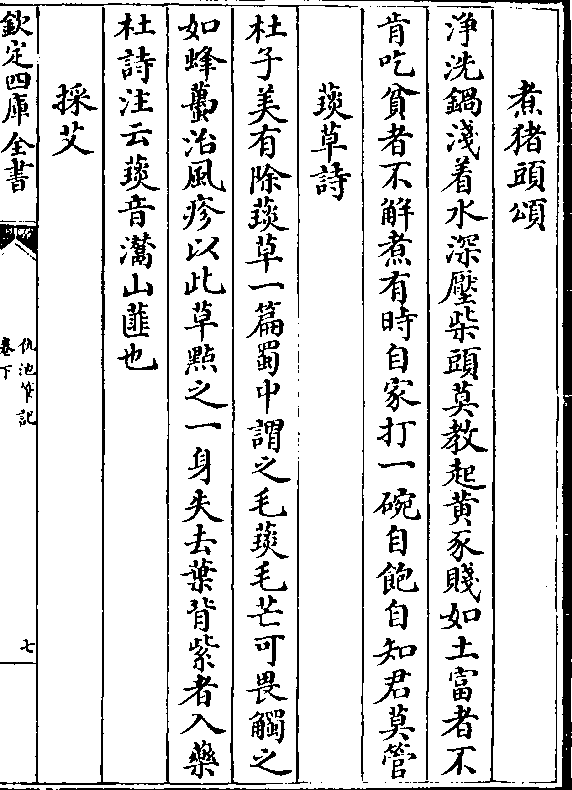 煮猪頭頌
浄洗鍋淺着水深壓柴頭莫教起黄豕賤如土富者不
肯吃貧者不解煮有時自家打一碗自飽自知君莫管
䕭草詩
杜子美有除䕭草一篇蜀中謂之毛䕭毛芒可畏觸之
如蜂蠆治風疹以此草㸃之一身失去葉背紫者入藥
杜詩注云䕭音灊山韮也
採艾
欽定四庫全書
仇池筆記
卷下
七